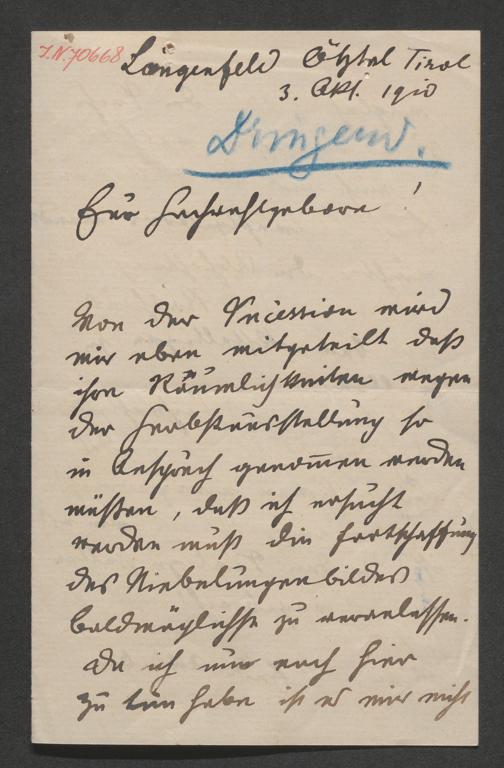 J.N. 70668
Längenfeld Ötztal Tirol
3. Okt. 1910
Dringend.
Euer Hochwohlgeboren!
Von der Secession wird
mir eben mitgeteilt daß
ihre Räumlichkeiten wegen
der Herbstausstellung so
in Anspruch genommen werden
müßten, daß ich ersucht
werden muß die Fortschaffung
des Niebelungenbildes
baldmöglichst zu veranlassen.
Da ich nun noch hier
zu tun habe ist es mir nicht